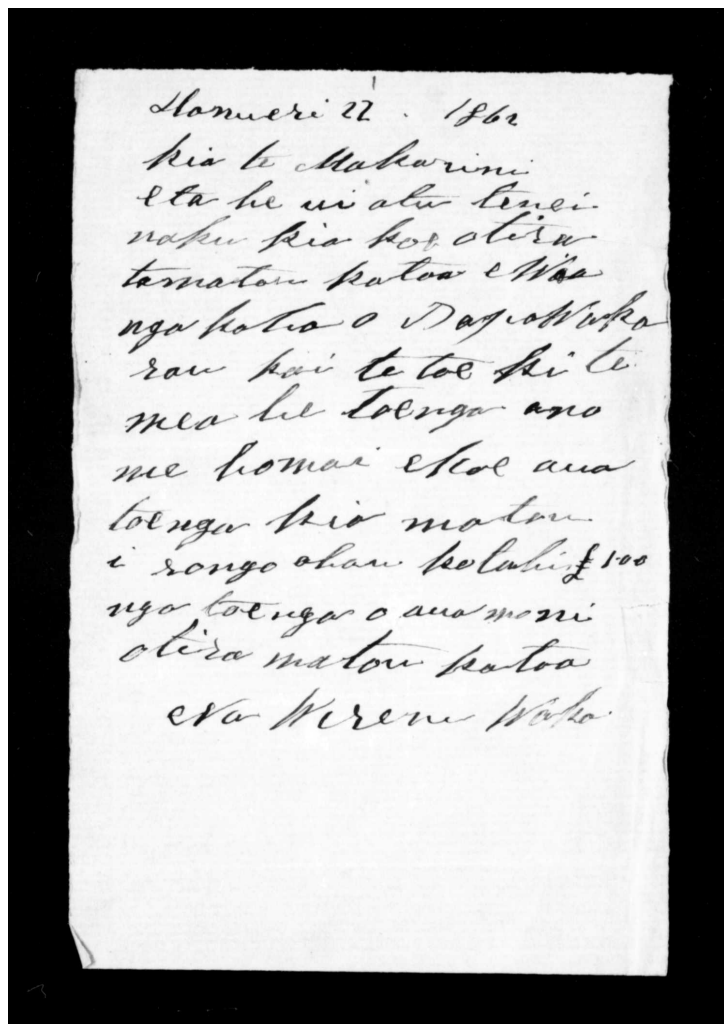 Hanueri 22 . 1862
kia te Makarini
eta he ui atu tenei
naku kia koe otira
tamatou katoa e Wha
nga katia o
rau kai te toe ki te
mea he toenga ano
me homai ekoe aua
toenga kia matou
i rongo ahau kotahi £100
nga toenga o aua moni
otira matou katoa
eNa Wiremu Waka